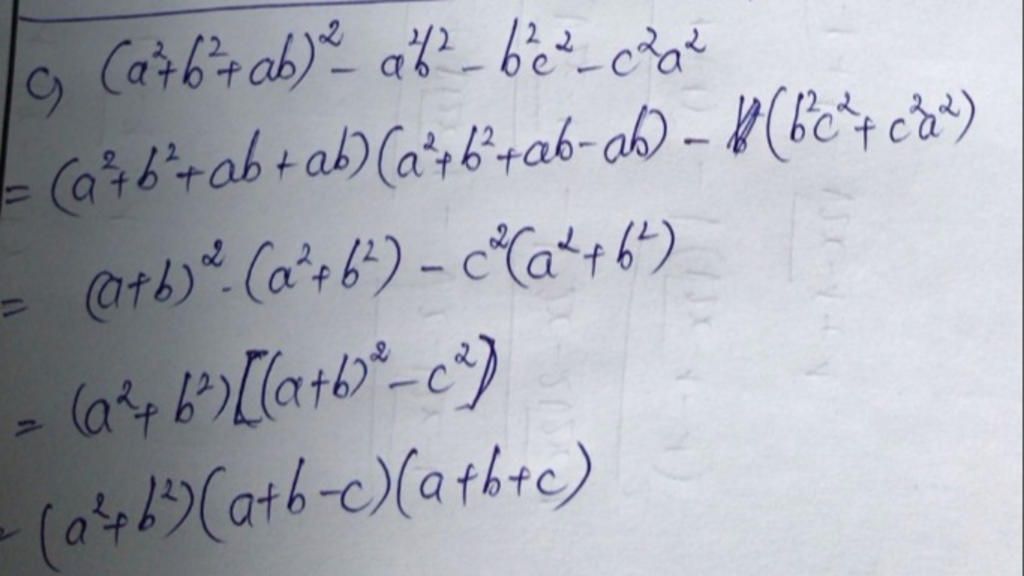 c) (a²+b²+ab)² - a²b² - b²c² - c²a²
= (a²+b²+ab+ab)(a²+b²+ab-ab) - (b²c²+c²a²)
= (a+b)².(a²+b²) - c²(a²+b²)
= (a²+b²)[(a+b)²-c²]
= (a²+b²)(a+b-c)(a+b+c)